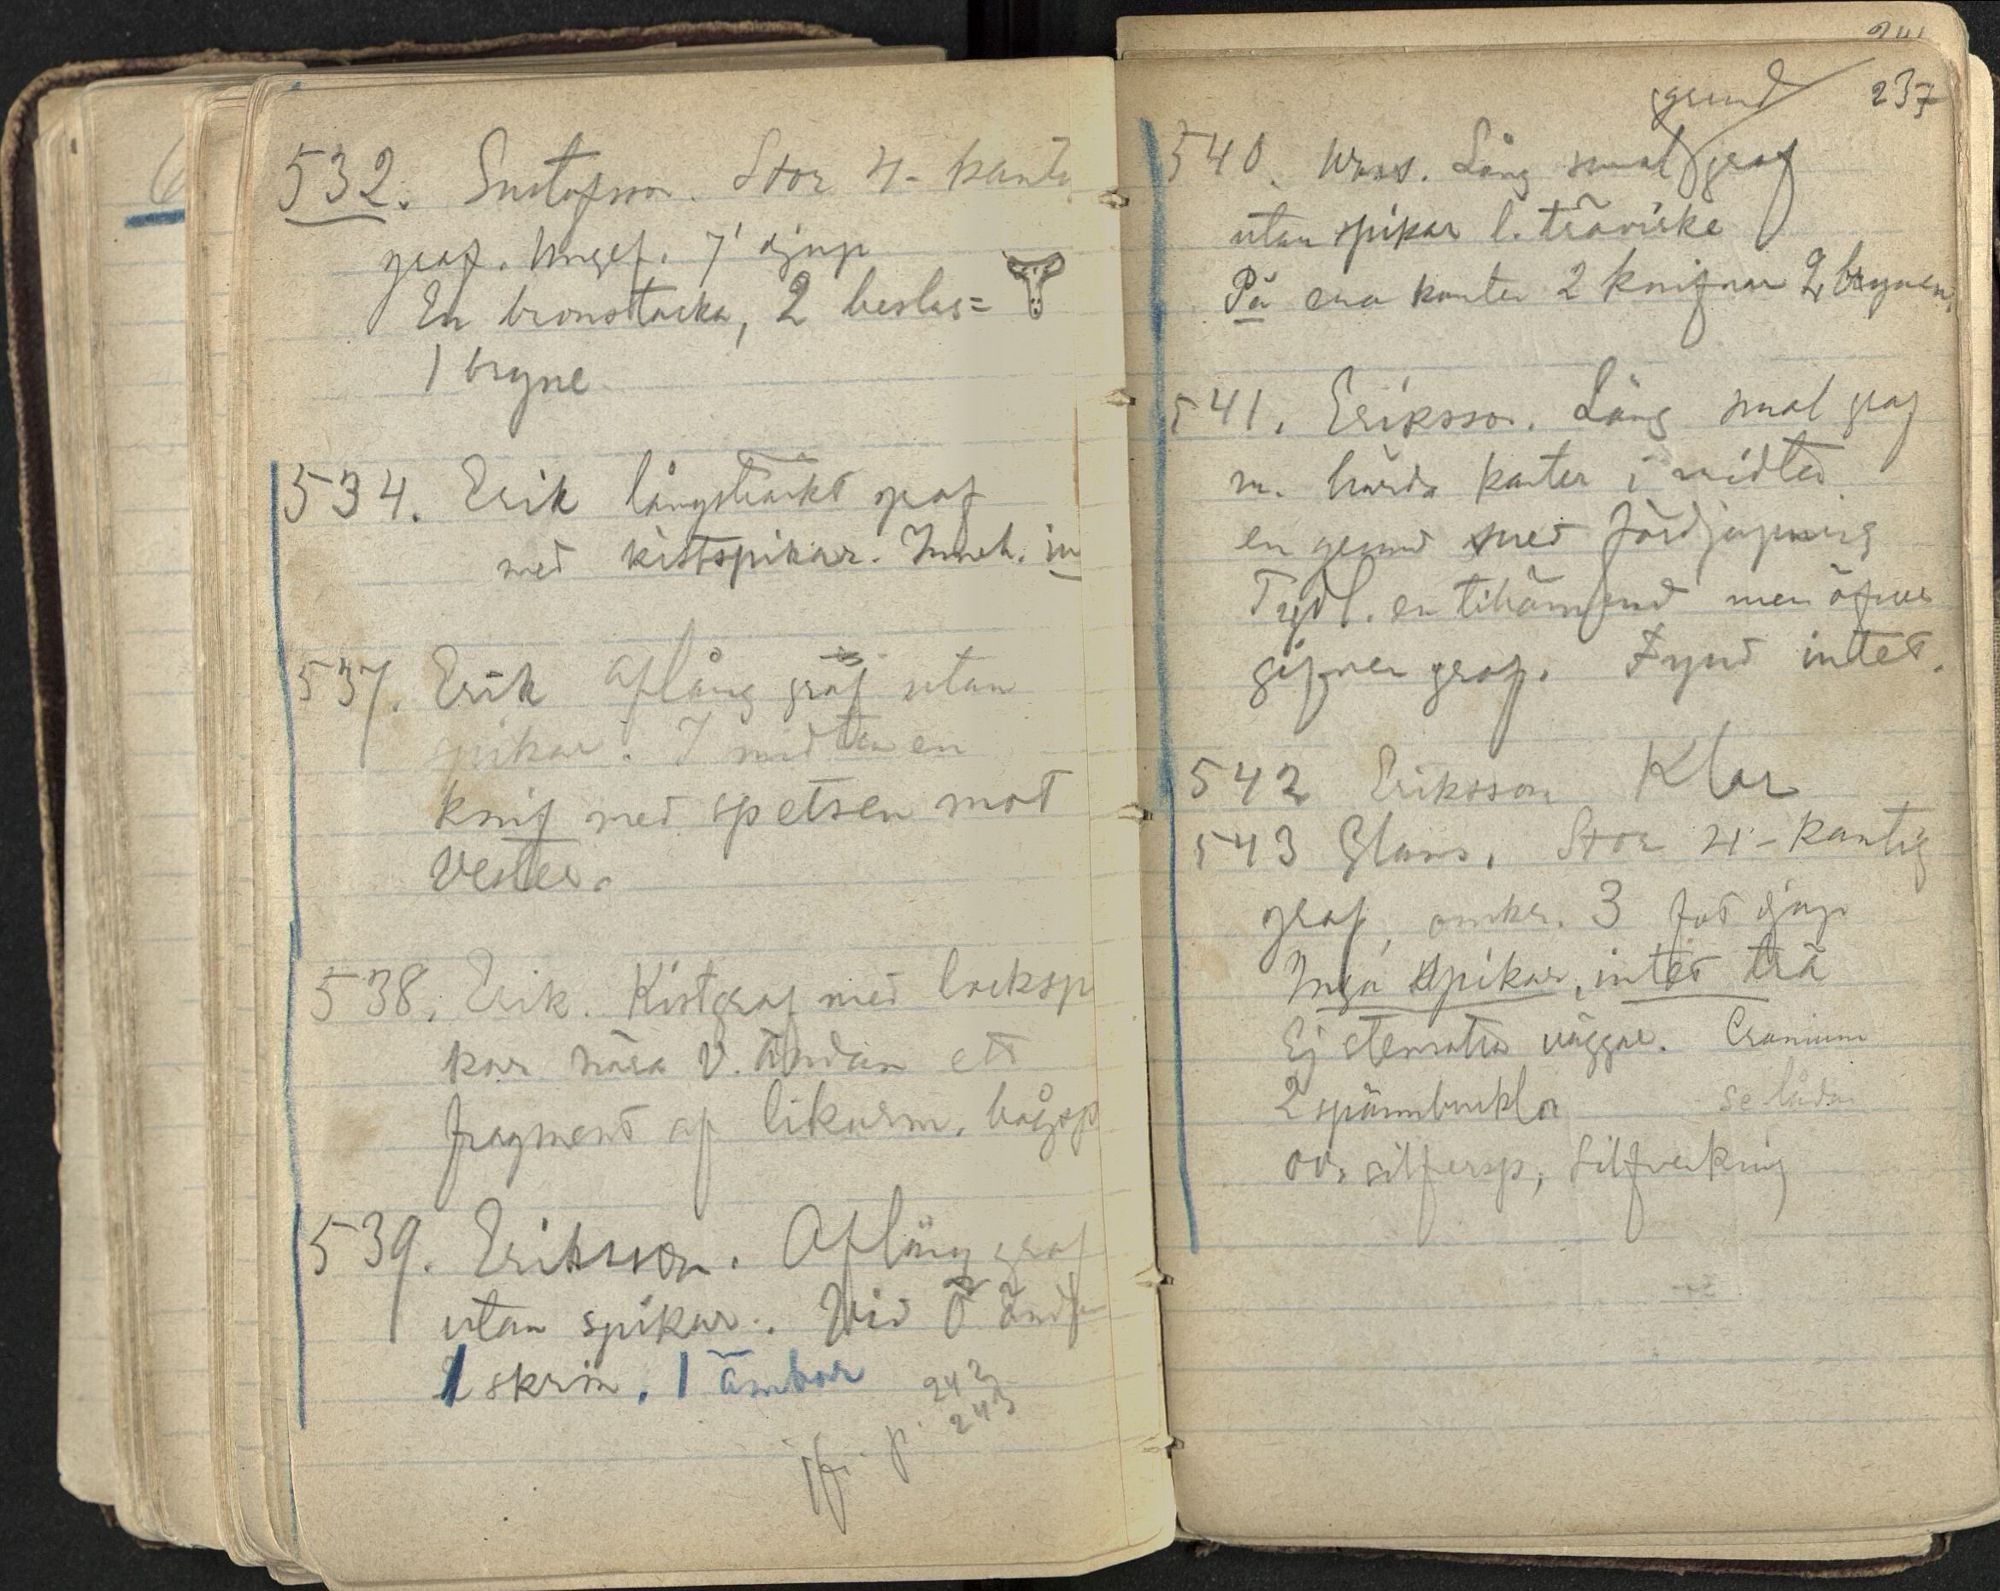 532. Gustafsson. Stor 4-kanti
graf. Ungef. 7' djup
En bronstacka, 2 beslag =
1 bryne
534. Erik långsträckt graf
med kistspikar. Inneh. in
537. Erik Aflång graf utan
spikar. I midten en
knif med spetsen mot
Vester.
538. Erik. Kistgraf med locksp
kar nära V. ändan ett
fragment af likarm. bågsp
539. Eriksson. Aflång graf
utan spikar. Vid Ö ändan
1 skrin. 1 ämbar
jfr. p. 242
243
237
grund
540. Wass. Lång smal graf
utan spikar l. trävirke
På ena kanten 2 knifvar 2 brynen.
541. Eriksson. Lång smal graf
m. hårda kanter i midten
en grund sned fördjupning
Tydl. en tillämnad men öfver
gifven graf. Fynd intet.
542 Eriksson Klar
543 Glans. Stor 4-kantig
graf, omkr. 3 fot djup
Inga spikar, intet trä
Ej stensatta väggar. Cranium
2 spännbucklor se lådan
ov. silfversp, Silfverring